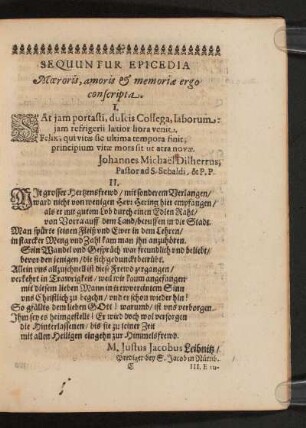 SEQUUNTUR EPICEDIA
Mœroris, amoris & memoriæ ergo
conscripta.
I.
SAt jam portasti, dulcis Collega, laborum:
jam refrigerii lætior hora venit.
Felix, qui vitæ sic ultima tempora finit,
principium vitæ mors sit ut atra novæ.
Johannes Michaël Dilherrus,
Pastor ad S. Sebaldi, & P. P.
II.
MIt grosser Hertzensfreud/ mit sonderem Verlangen/
ward nicht von wenigen Herr Hering hier empfangen/
als er mit gutem Lob durch einen Edlen Raht/
von Vorra auß dem Land/ beruffen in die Stadt.
Man spürte seinen Fleiß und Eiver in dem Lehren/
in starcker Meng und Zahl kam man ihn anzuhören.
Sein Wandel und Gespräch war freundlich und beliebt/
bevor den jenigen/ die sich geduncht betrübt.
Allein uns allzuschnell ist diese Freud ergangen/
verkehrt in Traurigkeit/ weil wir kaum angefangen
mit diesem lieben Mann in unvereintem Sinn
uns Christlich zu begehn/ und er schon wieder hin!
So gfällts dem lieben GOtt! warumb/ ist uns verborgen.
Ihm sey es heimgestellt! Er wird doch wol versorgen
die Hinterlassenen/ bis sie zu seiner Zeit
mit allen Heiligen eingehn zur Himmelsfreud.
M. Justus Jacobus Leibnitz/
Prediger bey S. Jacob in Nürnb.
C
III. E ru-